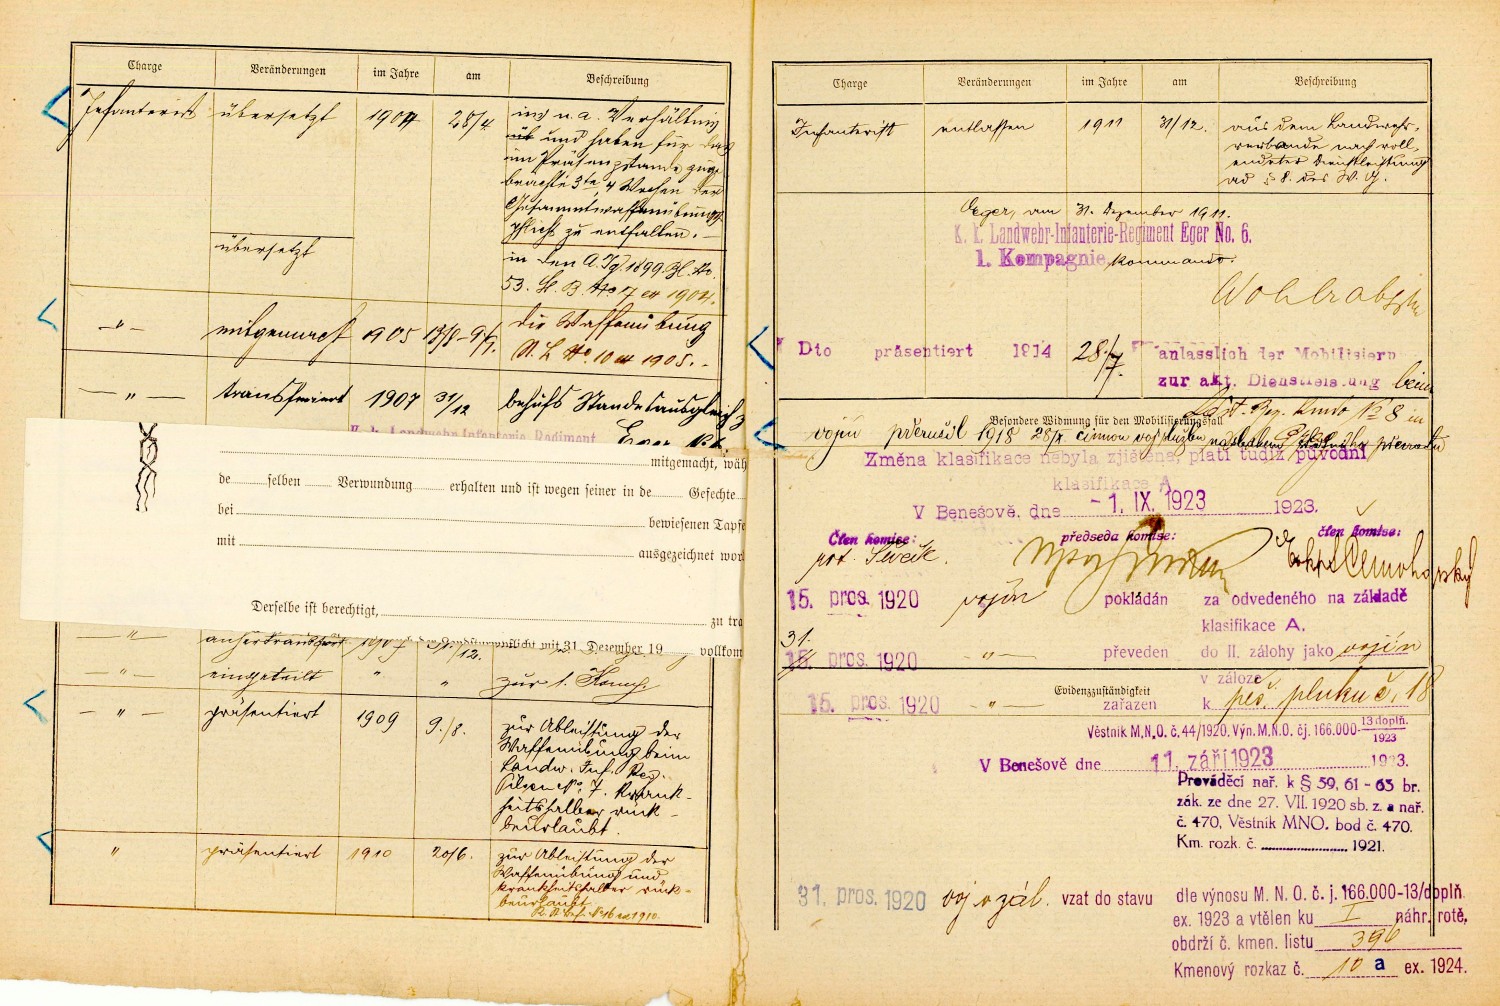 Charge Veränderungen im Jahre am Beschreibung
Infanterist übersetzt 1904 28/4 ins n. a. Verhältnis
und haben für das
im Präsenzstande zuge-
brachte 3te 4 Wochen der
Gesammtwaffenübungs-
pflicht zu entfallen. –
übersetzt
in den A. Jg. 1899 Bl. No.
53. H. B. No 7 ex 1904.
– " – mitgemacht 1905 13/8 – 9/9. die Waffenübung
A. L. No. 10 ex 1905. –
– " – transferiert 1907 31/12 behufs Standesausgleich z
K. k. Landwehr-Infanterie-Regiment
Eger No 6.
mitgemacht, wäh
de selben Verwundung erhalten und ist wegen seiner in de Gefechte
bei bewiesenen Tapfe
mit ausgezeichnet wor
Derselbe ist berechtigt, zu tra
Landsturmpflicht mit 31. Dezember 19 vollkom
– " – /12.
– " – eingeteilt " " zur 1. Komp.
– " – präsentiert 1909 9./8. zur Ableistung der
Waffenübung beim
Landw. Inf. Reg.
Pilsen No. 7. Krank-
heitshalber rück-
beurlaubt.
" präsentiert 1910 20/6. zur Ableistung der
Waffenübung und
krankheitshalber rück-
beurlaubt
No 16 ex 1910.
Charge Veränderungen im Jahre am Beschreibung
Infanterist entlassen 1911 31/12. aus dem Landwehr-
verbande nach voll-
endeter Dienstleistung
ad § 8. des W. G.
Eger, am 31. Dezember 1911.
K. k. Landwehr-Infanterie-Regiment Eger No. 6.
1. Kompagnie kommando.
Wohlrab
Dto präsentiert 1914 28./7. anlasslich der Mobilisiern
zur akt. Dienstleistung beim
No 8 in
Besondere Widmung für den Mobilisierungsfall
vojín přerušil 1918 28/X. činnou voj. službu následkem převratu
Změna klasifikace nebyla zjištěna, platí tudíž původní
klasifikace A.
V Benešově, dne -1. IX. 1923 1923.
Člen komise: předseda komise: člen komise:
15. pros. 1920 vojín pokládán za odvedeného na základě
klasifikace A.
31.
15. pros. 1920 – " – převeden do II. zálohy jako vojín
v záloze
Evidenzzuständigkeit
15. pros. 1920 – " – zařazen k pěš. pluku č. 18
Věstník M.N.O. č. 44/1920. Výn. M.N.O. čj. 166.000-13 doplň./1923
V Benešově dne 11. září 1923 1923.
Prováděcí nař. k § 59, 61 - 63 br.
zák. ze dne 27. VII. 1920 sb. z. a nař.
č. 470, Věstník MNO. bod č. 470.
Km. rozk. č. 1921.
31. pros. 1920 voj. v zál. vzat do stavu dle výnosu M. N. O. č. j. 166.000-13/doplň.
ex. 1923 a vtělen ku I náhr. rotě,
obdrží č. kmen. listu 396
Kmenový rozkaz č. 10 a ex. 1924.